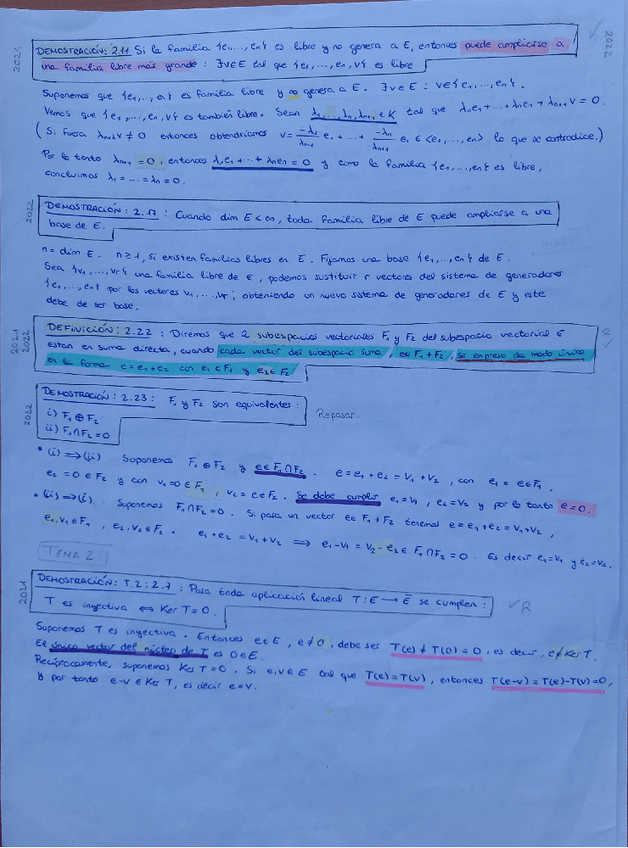 2021
2022
DEMOSTRACIÓN: 2.11 Si la familia {e₁,...,en} es libre y no genera a E, entonces puede ampliarse a
una familia libre más grande : ∃v∈E tal que {e₁,...,en,v} es libre
Suponemos que {e₁,...,en} es familia libre y no genera a E. ∃v∈E : v∉{e₁,...,en}.
Vemos que {e₁,...,en,v} es también libre. Sean λ₁,...,λn,λn+1 ∈ K tal que λ₁e₁+...+λnen+λn+1v = 0.
( Si fuera λn+1v ≠ 0 entonces obtendríamos v = -λ₁/λn+1 e₁ +...+ -λn/λn+1 e₁ ∈ <e₁,...,en> lo que se contradice.)
Por lo tanto λn+1 = 0, entonces λ₁e₁+...+λnen = 0 y como la familia {e₁,...,en} es libre,
concluimos λ₁=...=λn=0.
2022
DEMOSTRACIÓN: 2.17 : Cuando dim E<∞, toda familia libre de E puede ampliarse a una
base de E.
n = dim E. n≥1, si existen familias libres en E. Fijamos una base {e₁,...,en} de E.
Sea {v₁,...,vr} una familia libre de E, podemos sustituir r vectores del sistema de generadores
{e₁,...,en} por los vectores v₁,...,vr; obteniendo un nuevo sistema de generadores de E y este
debe de ser base.
2021
2022
DEFINICIÓN: 2.22 : Diremos que 2 subespacios vectoriales F₁ y F₂ del subespacio vectorial E
estan en suma directa, cuando cada vector del subespacio suma, e∈F₁+F₂, se expresa de modo único
en la forma e=e₁+e₂ con e₁∈F₁ y e₂∈F₂
R
2022
DEMOSTRACIÓN: 2.23: F₁ y F₂ son equivalentes :
i) F₁⊕F₂
ii) F₁∩F₂=0
Repasar.
• (i) ⟹ (ii) Suponemos F₁⊕F₂ y e∈F₁∩F₂. e=e₁+e₂=v₁+v₂, con e₁=e∈F₁,
e₂=0∈F₂ y con v₁=0∈F₁, v₂=e∈F₂. Se debe cumplir e₁=v₁, e₂=v₂ y por lo tanto e=0.
• (ii) ⟹ (i). Suponemos F₁∩F₂=0. Si para un vector e∈F₁+F₂ tenemos e=e₁+e₂=v₁+v₂,
e₁,v₁∈F₁, e₂,v₂∈F₂. e₁+e₂=v₁+v₂ ⟹ e₁-v₁=v₂-e₂∈F₁∩F₂=0. Es decir e₁=v₁ y e₂=v₂.
TEMA 2:
2021
DEMOSTRACIÓN: T.2: 2.7 : Para toda aplicación lineal T: E → Ē se cumplen:
T es inyectiva ⇔ Ker T=0.
✓R
Suponemos T es inyectiva. Entonces e∈E, e≠0, debe ser T(e)≠T(0)=0, es decir, e∉Ker T.
El único vector del núcleo de T es 0∈E.
Recíprocamente, suponemos Ker T=0. Si e,v∈E tal que T(e)=T(v), entonces T(e-v)=T(e)-T(v)=0,
y por tanto e-v∈Ker T, es decir e=v.